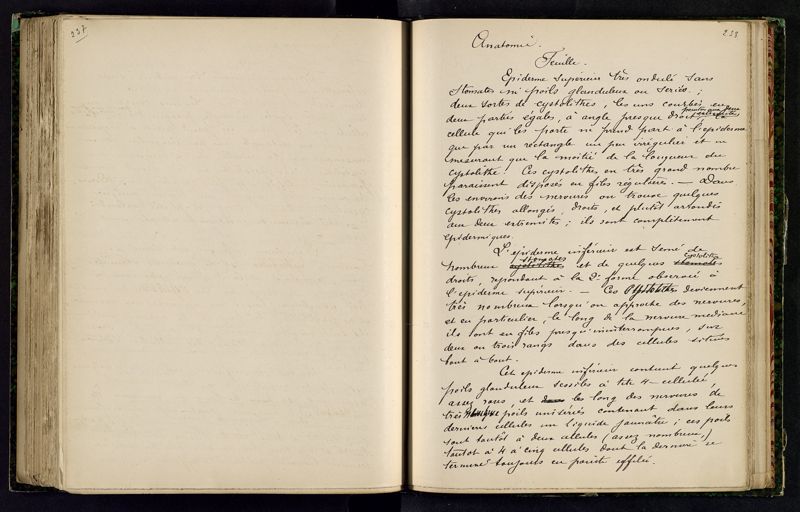 237
233
Anatomie.
Feuille.
Epiderme supérieur très ondulé sans
stomates ni poils glanduleux ou seriés ;
deux sortes de cystolithes, les uns courbés en
deux parties égales, à angle presque droit, pointus aux deux extrémités,
cellule qui les porte ne prend part à l'épiderme
que par un rectangle un peu irrégulier et ne
mesurant que la moitié de la longueur du
cystolithe. Ces cystolithes en très grand nombre
paraissent disposés en files régulières. — Dans
les environs des nervures on trouve quelques
cystolithes allongés, droits, et plutôt arrondis
aux deux extrémités ; ils sont complètement
épidermiques.
L'épiderme inférieur est semé de
nombreux cystolithes stomates et de quelques stomates cystolithes
droits, répondant à la 2e forme observée à
l'épiderme supérieur. — Ces cystolithes deviennent
très nombreux lorsqu'on approche des nervures,
et en particulier, le long de la nervure mediane
ils sont en files presqu'ininterrompues, sur
deux ou trois rangs dans des cellules situées
bout à bout.
Cet épiderme inférieur contient quelques
poils glanduleux sessiles à tête 4-cellulée,
assez rares, et dans le long des nervures de
très poils unisériés contenant dans leurs
dernières cellules un liquide jaunâtre ; ces poils
sont tantôt à deux cellules (assez nombreux)
tantôt à 4 à cinq cellules dont la dernière se
termine toujours en pointe effilée.